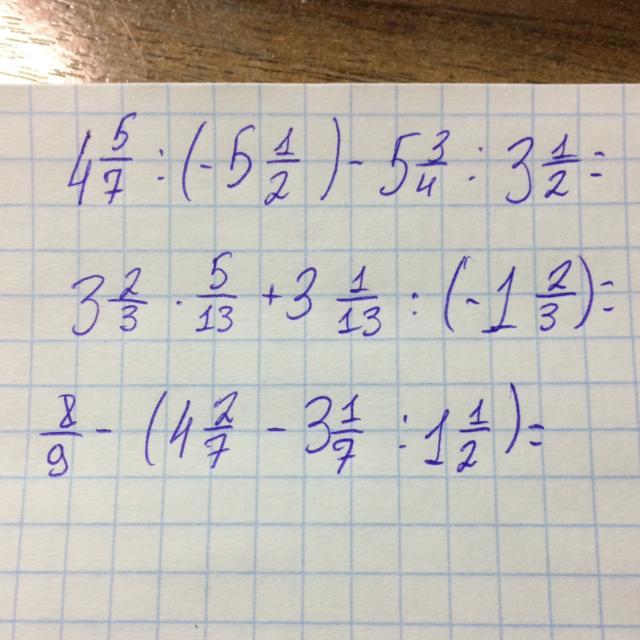 4 5/7 : (-5 1/2) - 5 3/4 : 3 1/2 =
3 2/3 · 5/13 + 3 1/13 : (-1 2/3) =
8/9 - (4 2/7 - 3 1/7 : 1 1/2) =